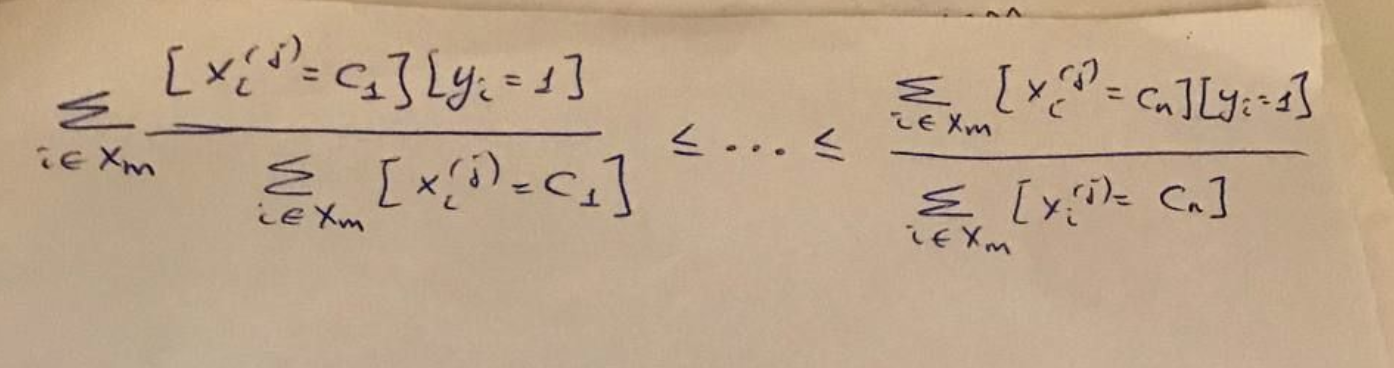 $$\sum_{i \in X_m} \frac{[x_i^{(j)} = c_1][y_i = 1]}{\sum_{i \in X_m} [x_i^{(j)} = c_1]} \leq \ldots \leq \frac{\sum_{i \in X_m} [x_i^{(j)} = c_n][y_i = 1]}{\sum_{i \in X_m} [x_i^{(j)} = c_n]}$$